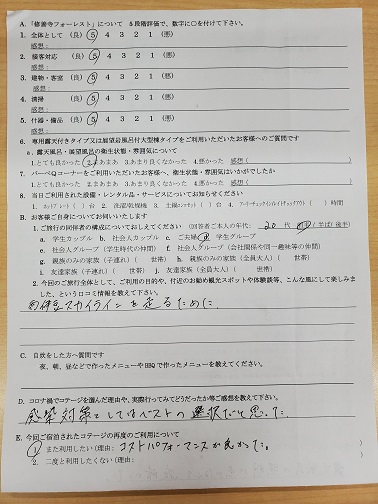 A. 「修善寺フォーレスト」について 5段階評価で、数字に○を付けて下さい。
1. 全体として (良) 5 4 3 2 1 (悪)
感想:
2. 接客対応 (良) 5 4 3 2 1 (悪)
感想:
3. 建物・客室 (良) 5 4 3 2 1 (悪)
感想:
4. 清掃 (良) 5 4 3 2 1 (悪)
感想:
5. 什器・備品 (良) 5 4 3 2 1 (悪)
感想:
6. 専用露天付きタイプ又は展望岩風呂付大型棟タイプをご利用いただいたお客様へのご質問です
a. 露天風呂・展望風呂の衛生状態・雰囲気について
1.とても良かった 2.まあまあ 3.あまり良くなかった 4.悪かった 感想(
7. バーベQコーナーをご利用いただいたお客様へ、衛生状態・雰囲気はいかがでしたか
1.とても良かった 2.まあまあ 3.あまり良くなかった 4.悪かった 感想(
8. 当日ご利用された設備・レンタル品・サービスについてお知らせください
B. お客様ご自身についてお伺いいたします
1. ご旅行の同伴者の構成についておしえてください (回答者ご本人の年代: 20 代
a. 学生カップル b. 社会人カップル c. ご夫婦 d. 学生グループ
e. 社会人グループ (学生時代の仲間) f. 社会人グループ (会社関係や同一趣味等の仲間)
g. 親族のみの家族 (子連れ) ( 世帯) h. 親族のみの家族 (全員大人) ( 世帯)
i. 友達家族 (子連れ) ( 世帯) j. 友達家族 (全員大人) ( 世帯)
2. 今回のご旅行全体として、ご利用の目的や、付近のお勧め観光スポットや体験談等、こんな風にして楽しみました、という口コミ情報を教えて下さい。
西伊豆スカイラインを走るために
C. 自炊をした方へ質問です
夜、朝、昼などで作ったメニューやBBQで作ったメニューを教えてください。
D. コロナ禍でコテージを選んだ理由や、実際行ってみてどうだったか等ご感想を教えて下さい。
感染対策としてはベストの選択だと思った。
E. 今回ご宿泊されたコテージの再度のご利用について
1. また利用したい (理由: コストパフォーマンスが良かった。
2. 二度と利用したくない (理由: